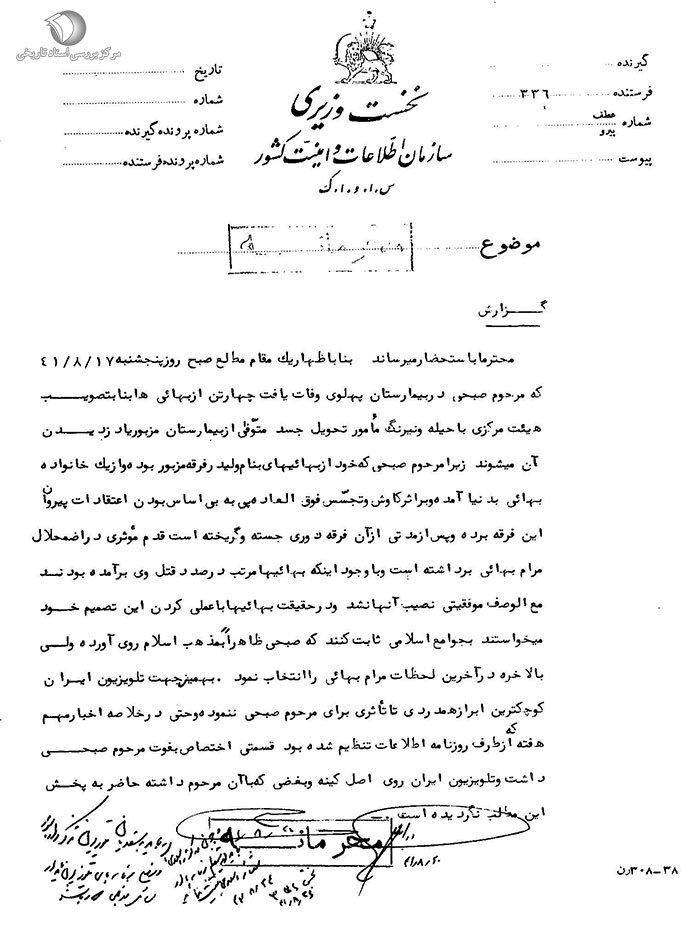 مرکز بررسی اسناد تاریخی
نخست وزیری
سازمان اطلاعات و امنیت کشور
س.ا.و.ا.ک
گیرنده
فرستنده ۳۳۶
شماره عطف پیرو
پیوست
تاریخ
شماره
شماره پرونده گیرنده
شماره پرونده فرستنده
موضوع
گزارش
محترما باستحضار میرساند بنا باظهار یك مقام مطلع صبح روز پنجشنبه ۴۱/۸/۱۷
که مرحوم صبحی در بیمارستان پهلوی وفات یافت چهارتن از بهائی ها بنا بتصویب
هیئت مرکزی با حیله ونیرنگ مأمور تحویل جسد متوفی از بیمارستان مزبور یا دزدیدن
آن میشوند زیرا مرحوم صبحی که خود از بهائیهای بنام ولیدر فرقه مزبور بوده واز یك خانواده
بهائی بدنیا آمده وبراثر کاوش وتجسس فوق العاده پی به بی اساس بودن اعتقادات پیروان
این فرقه برده وپس از مدتی از آن فرقه دوری جسته وگریخته است قدم مؤثری در اضمحلال
مرام بهائی برداشته است وبا وجود اینکه بهائیها مرتب درصدد قتل وی برآمده بودند
مع الوصف موفقیتی نصیب آنها نشد ودر حقیقت بهائیها با عملی کردن این تصمیم خود
میخواستند بجوامع اسلامی ثابت کنند که صبحی ظاهراً بمذهب اسلام روی آورده ولی
بالاخره در آخرین لحظات مرام بهائی را انتخاب نمود . بهمین جهت تلویزیون ایران
کوچکترین ابراز همدردی تا تأثری برای مرحوم صبحی ننموده وحتی در خلاصه اخبار مهم
هفته که از طرف روزنامه اطلاعات تنظیم شده بود قسمتی اختصاص بفوت مرحوم صبحی
داشت وتلویزیون ایران روی اصل کینه وبغضی که با آن مرحوم داشته حاضر به پخش
این مطالب نگردیده است .
محرمانه
۳۰۸-۳۸ رن